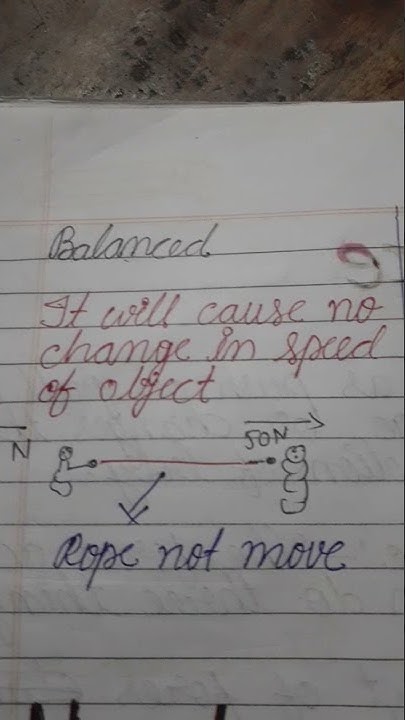 Balanced
It will cause no
change in speed
of object
N
50N
Rope not move